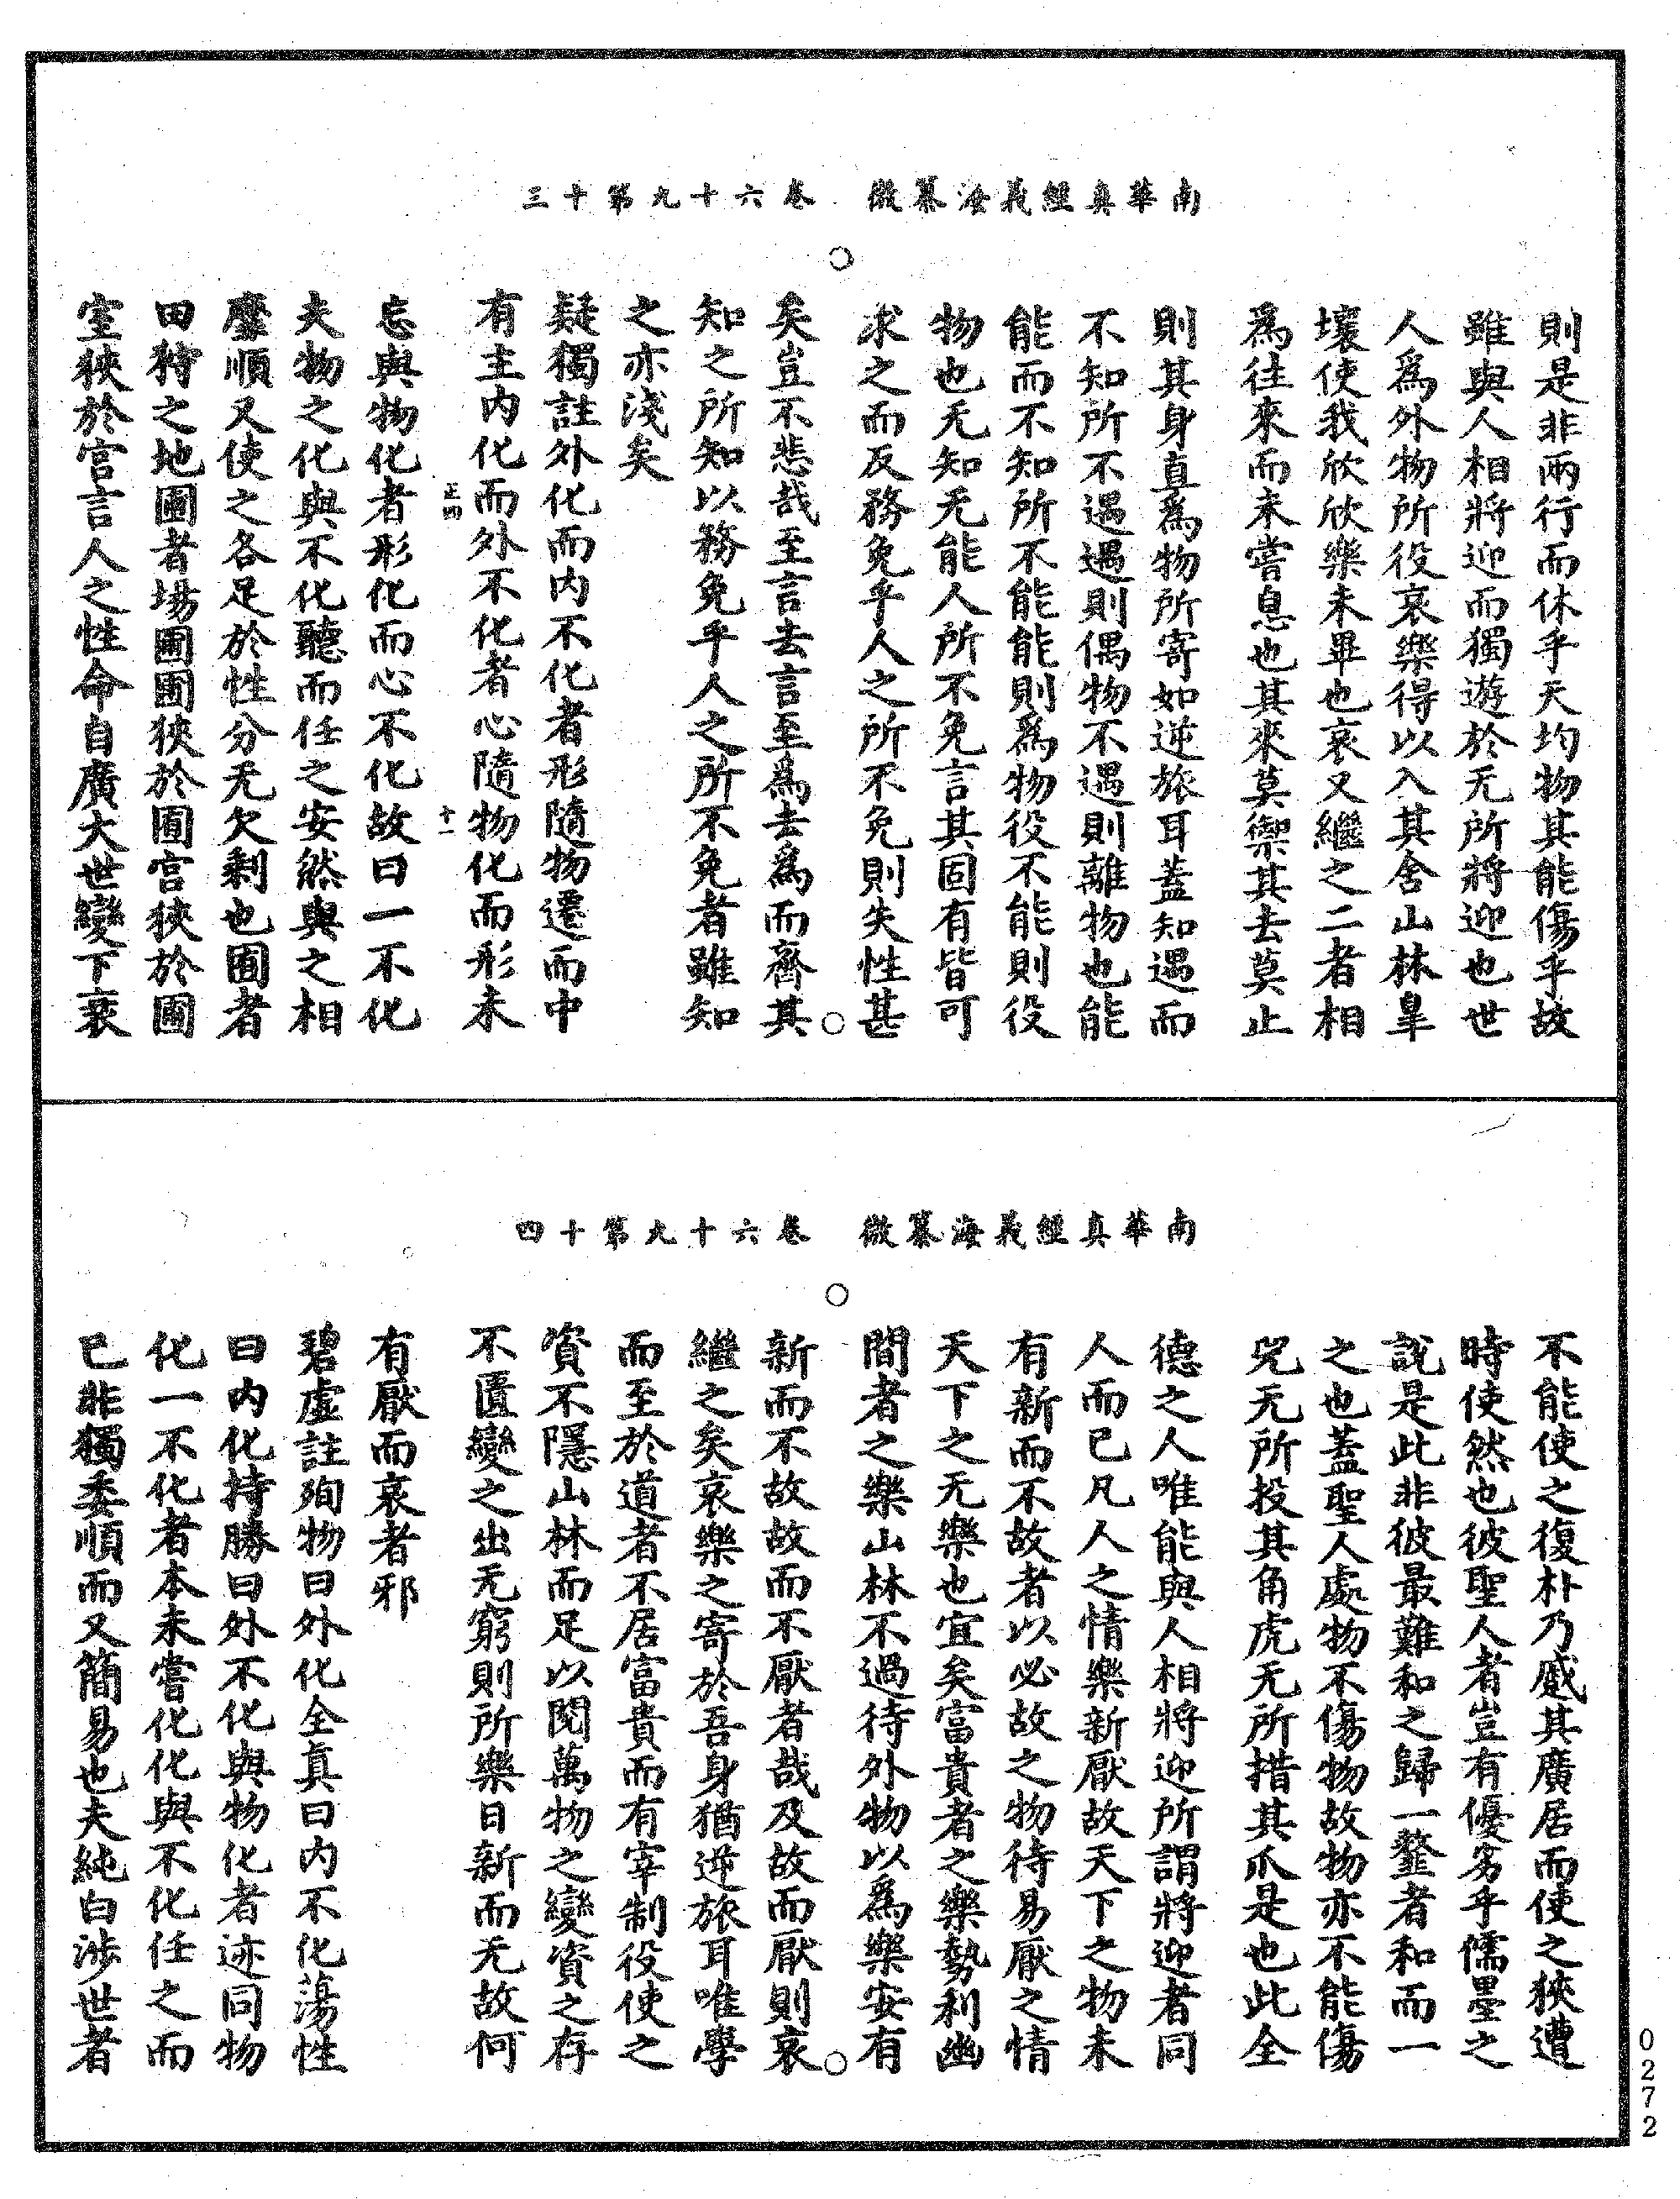 南華真經義海纂微　卷六十九第十三
則是非兩行而休乎天均物其能傷乎故
雖與人相將迎而獨遊於无所將迎也世
人爲外物所役哀樂得以入其舍山林皐
壤使我欣欣樂未畢也哀又繼之二者相
爲往來而未嘗息也其來莫禦其去莫止
則其身直爲物所寄如逆旅耳蓋知遇而
不知所不遇遇則偶物不遇則離物也能
能而不知所不能能則爲物役不能則役
物也无知无能人所不免言其固有皆可
求之而反務免乎人之所不免則失性甚
矣豈不悲哉至言去言至爲去爲而齊其
知之所知以務免乎人之所不免者雖知
之亦淺矣
疑獨註外化而内不化者形隨物遷而中
有主内化而外不化者心隨物化而形未
正四　十一
忘與物化者形化而心不化故曰一不化
夫物之化與不化聽而任之安然與之相
靡順又使之各足於性分无欠剩也囿者
田狩之地圃者場圃圃狹於囿宫狹於圃
室狹於宫言人之性命自廣大世變下衰
南華真經義海纂微　卷六十九第十四
不能使之復朴乃蹙其廣居而使之狹遭
時使然也彼聖人者豈有優劣乎儒墨之
說是此非彼最難和之歸一䪡者和而一
之也蓋聖人處物不傷物故物亦不能傷
兕无所投其角虎无所措其爪是也此全
德之人唯能與人相將迎所謂將迎者同
人而已凡人之情樂新厭故天下之物未
有新而不故者以必故之物待易厭之情
天下之无樂也宜矣富貴者之樂勢利幽
閒者之樂山林不過待外物以爲樂安有
新而不故故而不厭者哉及故而厭則哀
繼之矣哀樂之寄於吾身猶逆旅耳唯學
而至於道者不居富貴而有宰制役使之
資不隱山林而足以閱萬物之變資之存
不匱變之出无窮則所樂日新而无故何
有厭而哀者邪
碧虛註殉物曰外化全真曰内不化蕩性
曰内化持勝曰外不化與物化者迹同物
化一不化者本未嘗化化與不化任之而
已非獨委順而又簡易也夫純白涉世者
0272